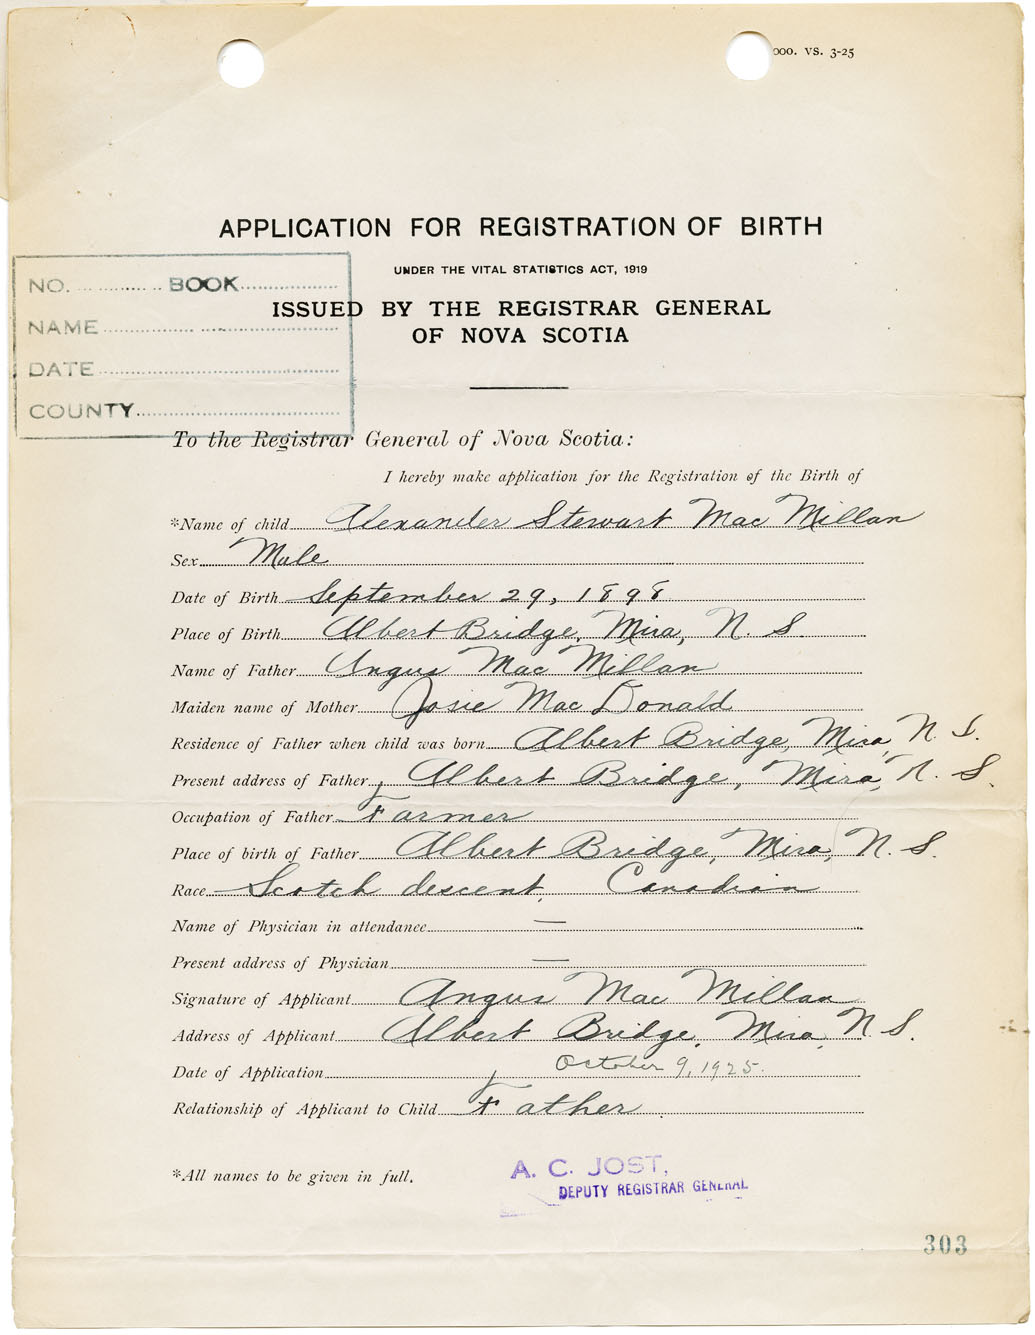 000. VS. 3-25
APPLICATION FOR REGISTRATION OF BIRTH
UNDER THE VITAL STATISTICS ACT, 1919
ISSUED BY THE REGISTRAR GENERAL
OF NOVA SCOTIA
NO. BOOK
NAME
DATE
COUNTY
To the Registrar General of Nova Scotia:
I hereby make application for the Registration of the Birth of
*Name of child Alexander Stewart Mac Millan
Sex Male
Date of Birth September 29, 1898
Place of Birth Albert Bridge, Mira, N. S.
Name of Father Angus Mac Millan
Maiden name of Mother Josie Mac Donald
Residence of Father when child was born Albert Bridge, Mira, N. S.
Present address of Father Albert Bridge, Mira, N. S.
Occupation of Father Farmer
Place of birth of Father Albert Bridge, Mira, N. S.
Race Scotch descent, Canadian
Name of Physician in attendance —
Present address of Physician —
Signature of Applicant Angus Mac Millan
Address of Applicant Albert Bridge, Mira, N. S.
Date of Application October 9, 1925.
Relationship of Applicant to Child Father
*All names to be given in full.
A. C. JOST,
DEPUTY REGISTRAR GENERAL
303